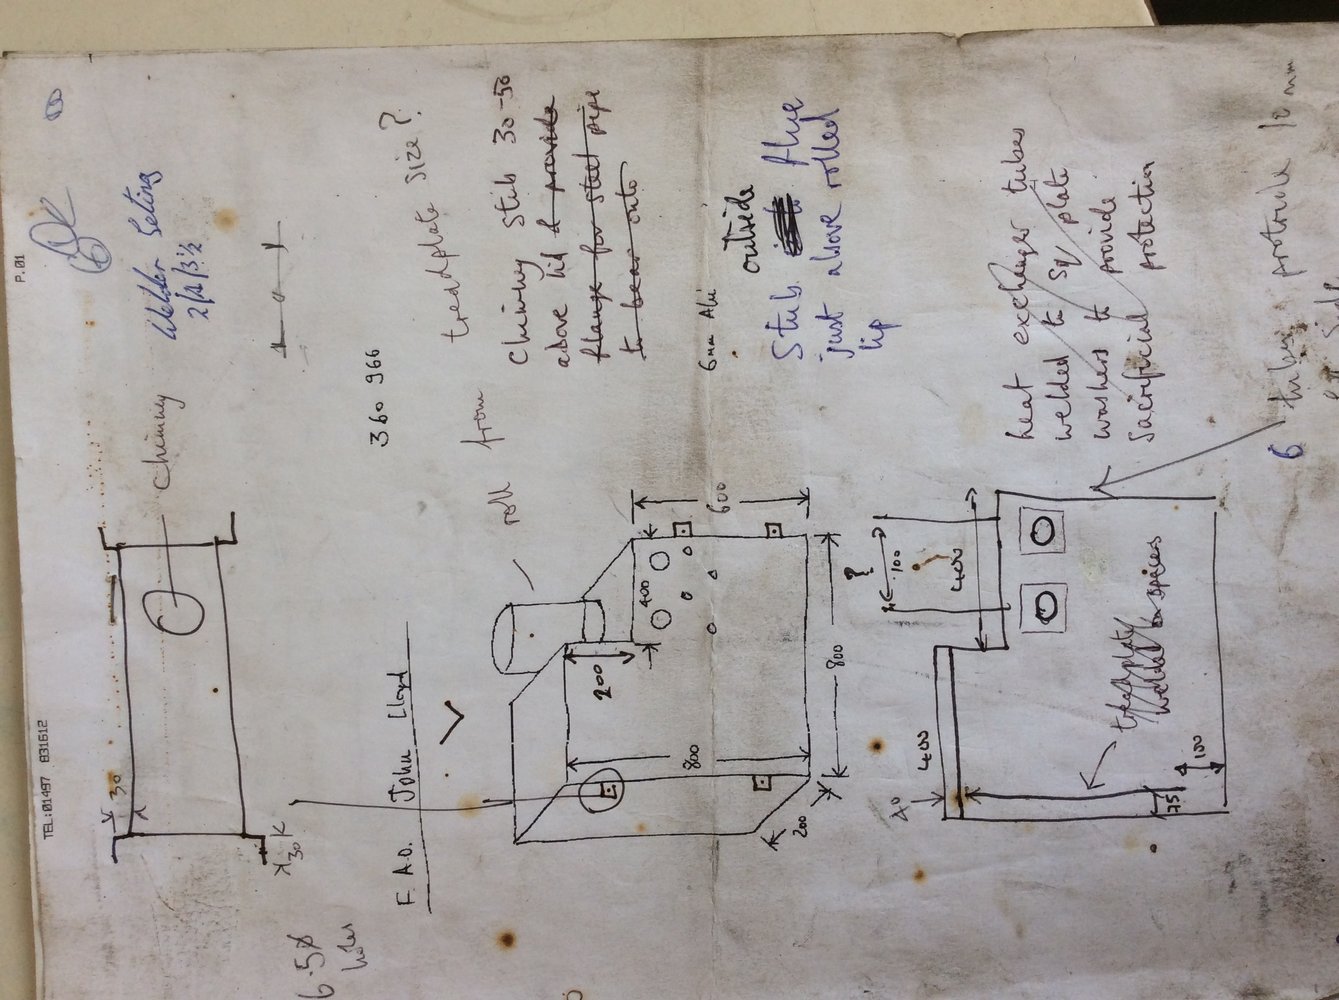 TEL:01497 831612
P.01
Welder Setting
2/4/3½
Chimney
30
30
6.5Ø
holes
360 966
F.A.O. John Lloyd
treadplate size?
roll from
Chimney Stub 30-50
above lid & provide
flange for steel pipe
to bear onto
6mm Ali
outside
Stub flue
just above rolled
lip
600
400
200
800
800
200
heat exchanger tubes
welded to sq plate
washers to provide
sacrificial protection
?
100
400
400
40
75
100
treadplate
welded
spacers
6
tubes protrude 10 mm